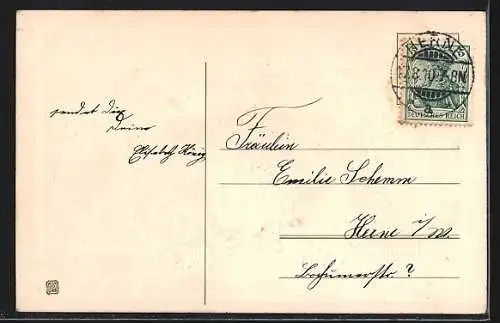 sendet dir
Deine
Elisabeth König
HERNE
DEUTSCHES REICH
a
Fräulein
Emilie Schemm
Herne i/W.
Bochumerstr. ?